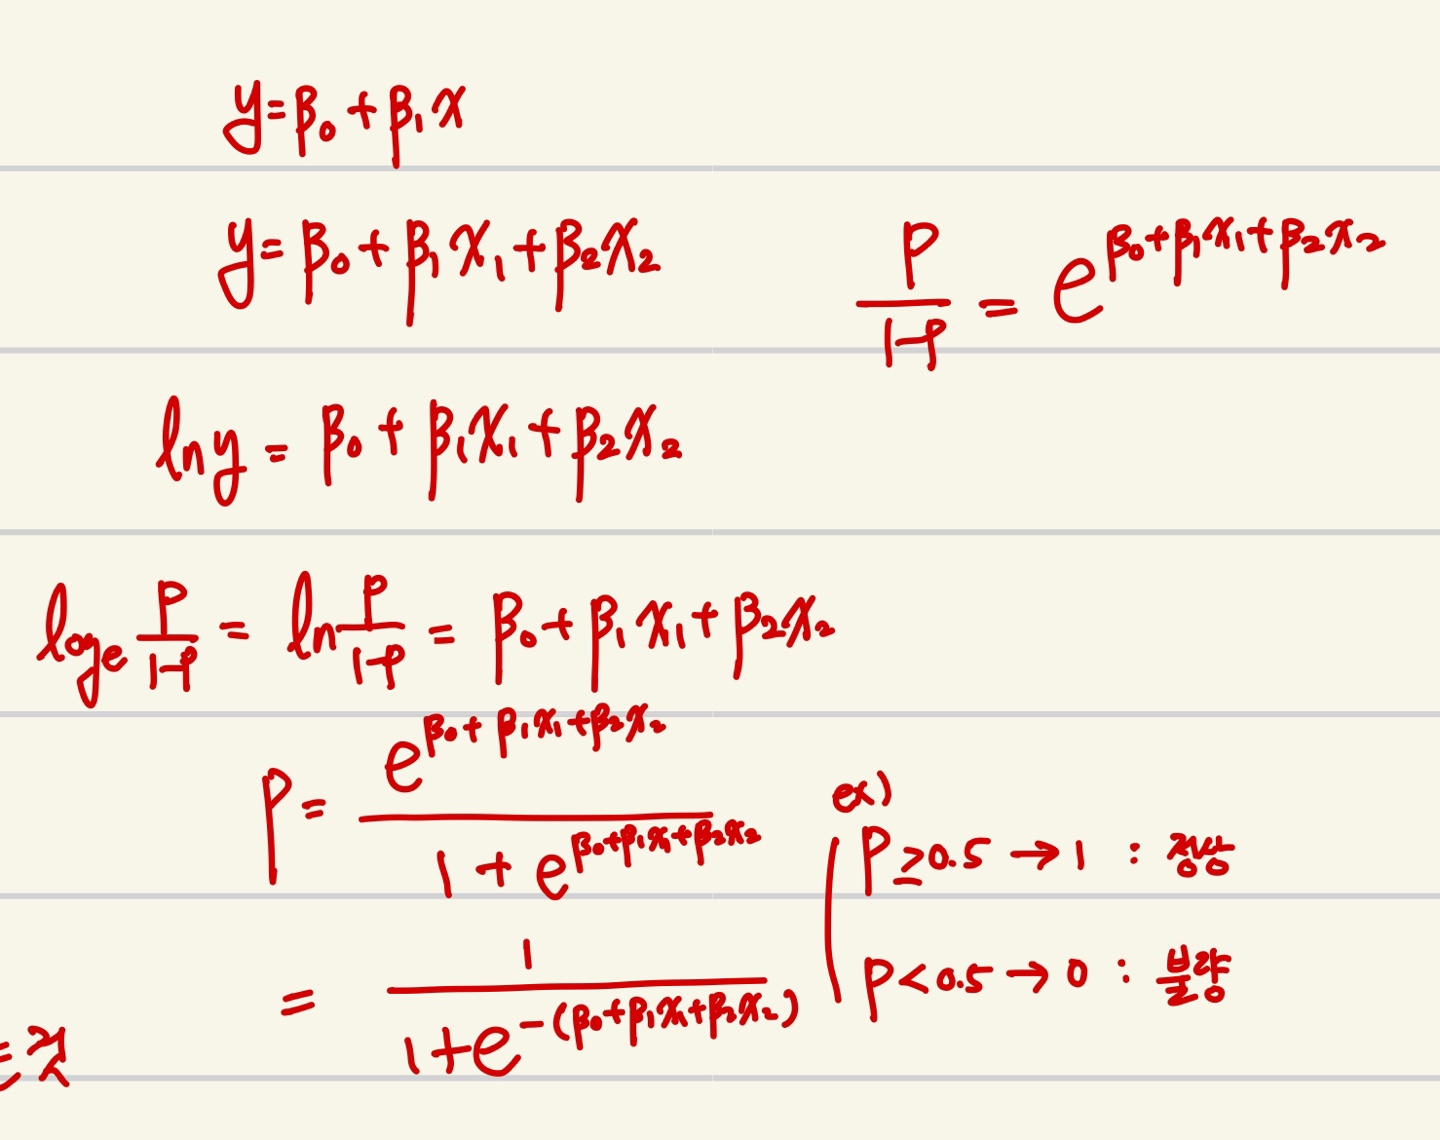 y = β₀ + β₁x
y = β₀ + β₁x₁ + β₂x₂
p/(1-p) = e^(β₀+β₁x₁+β₂x₂)
ln y = β₀ + β₁x₁ + β₂x₂
logₑ p/(1-p) = ln p/(1-p) = β₀ + β₁x₁ + β₂x₂
p = e^(β₀+β₁x₁+β₂x₂) / (1 + e^(β₀+β₁x₁+β₂x₂))
= 1 / (1 + e^-(β₀+β₁x₁+β₂x₂))
ex)
p ≥ 0.5 → 1 : 정상
p < 0.5 → 0 : 불량